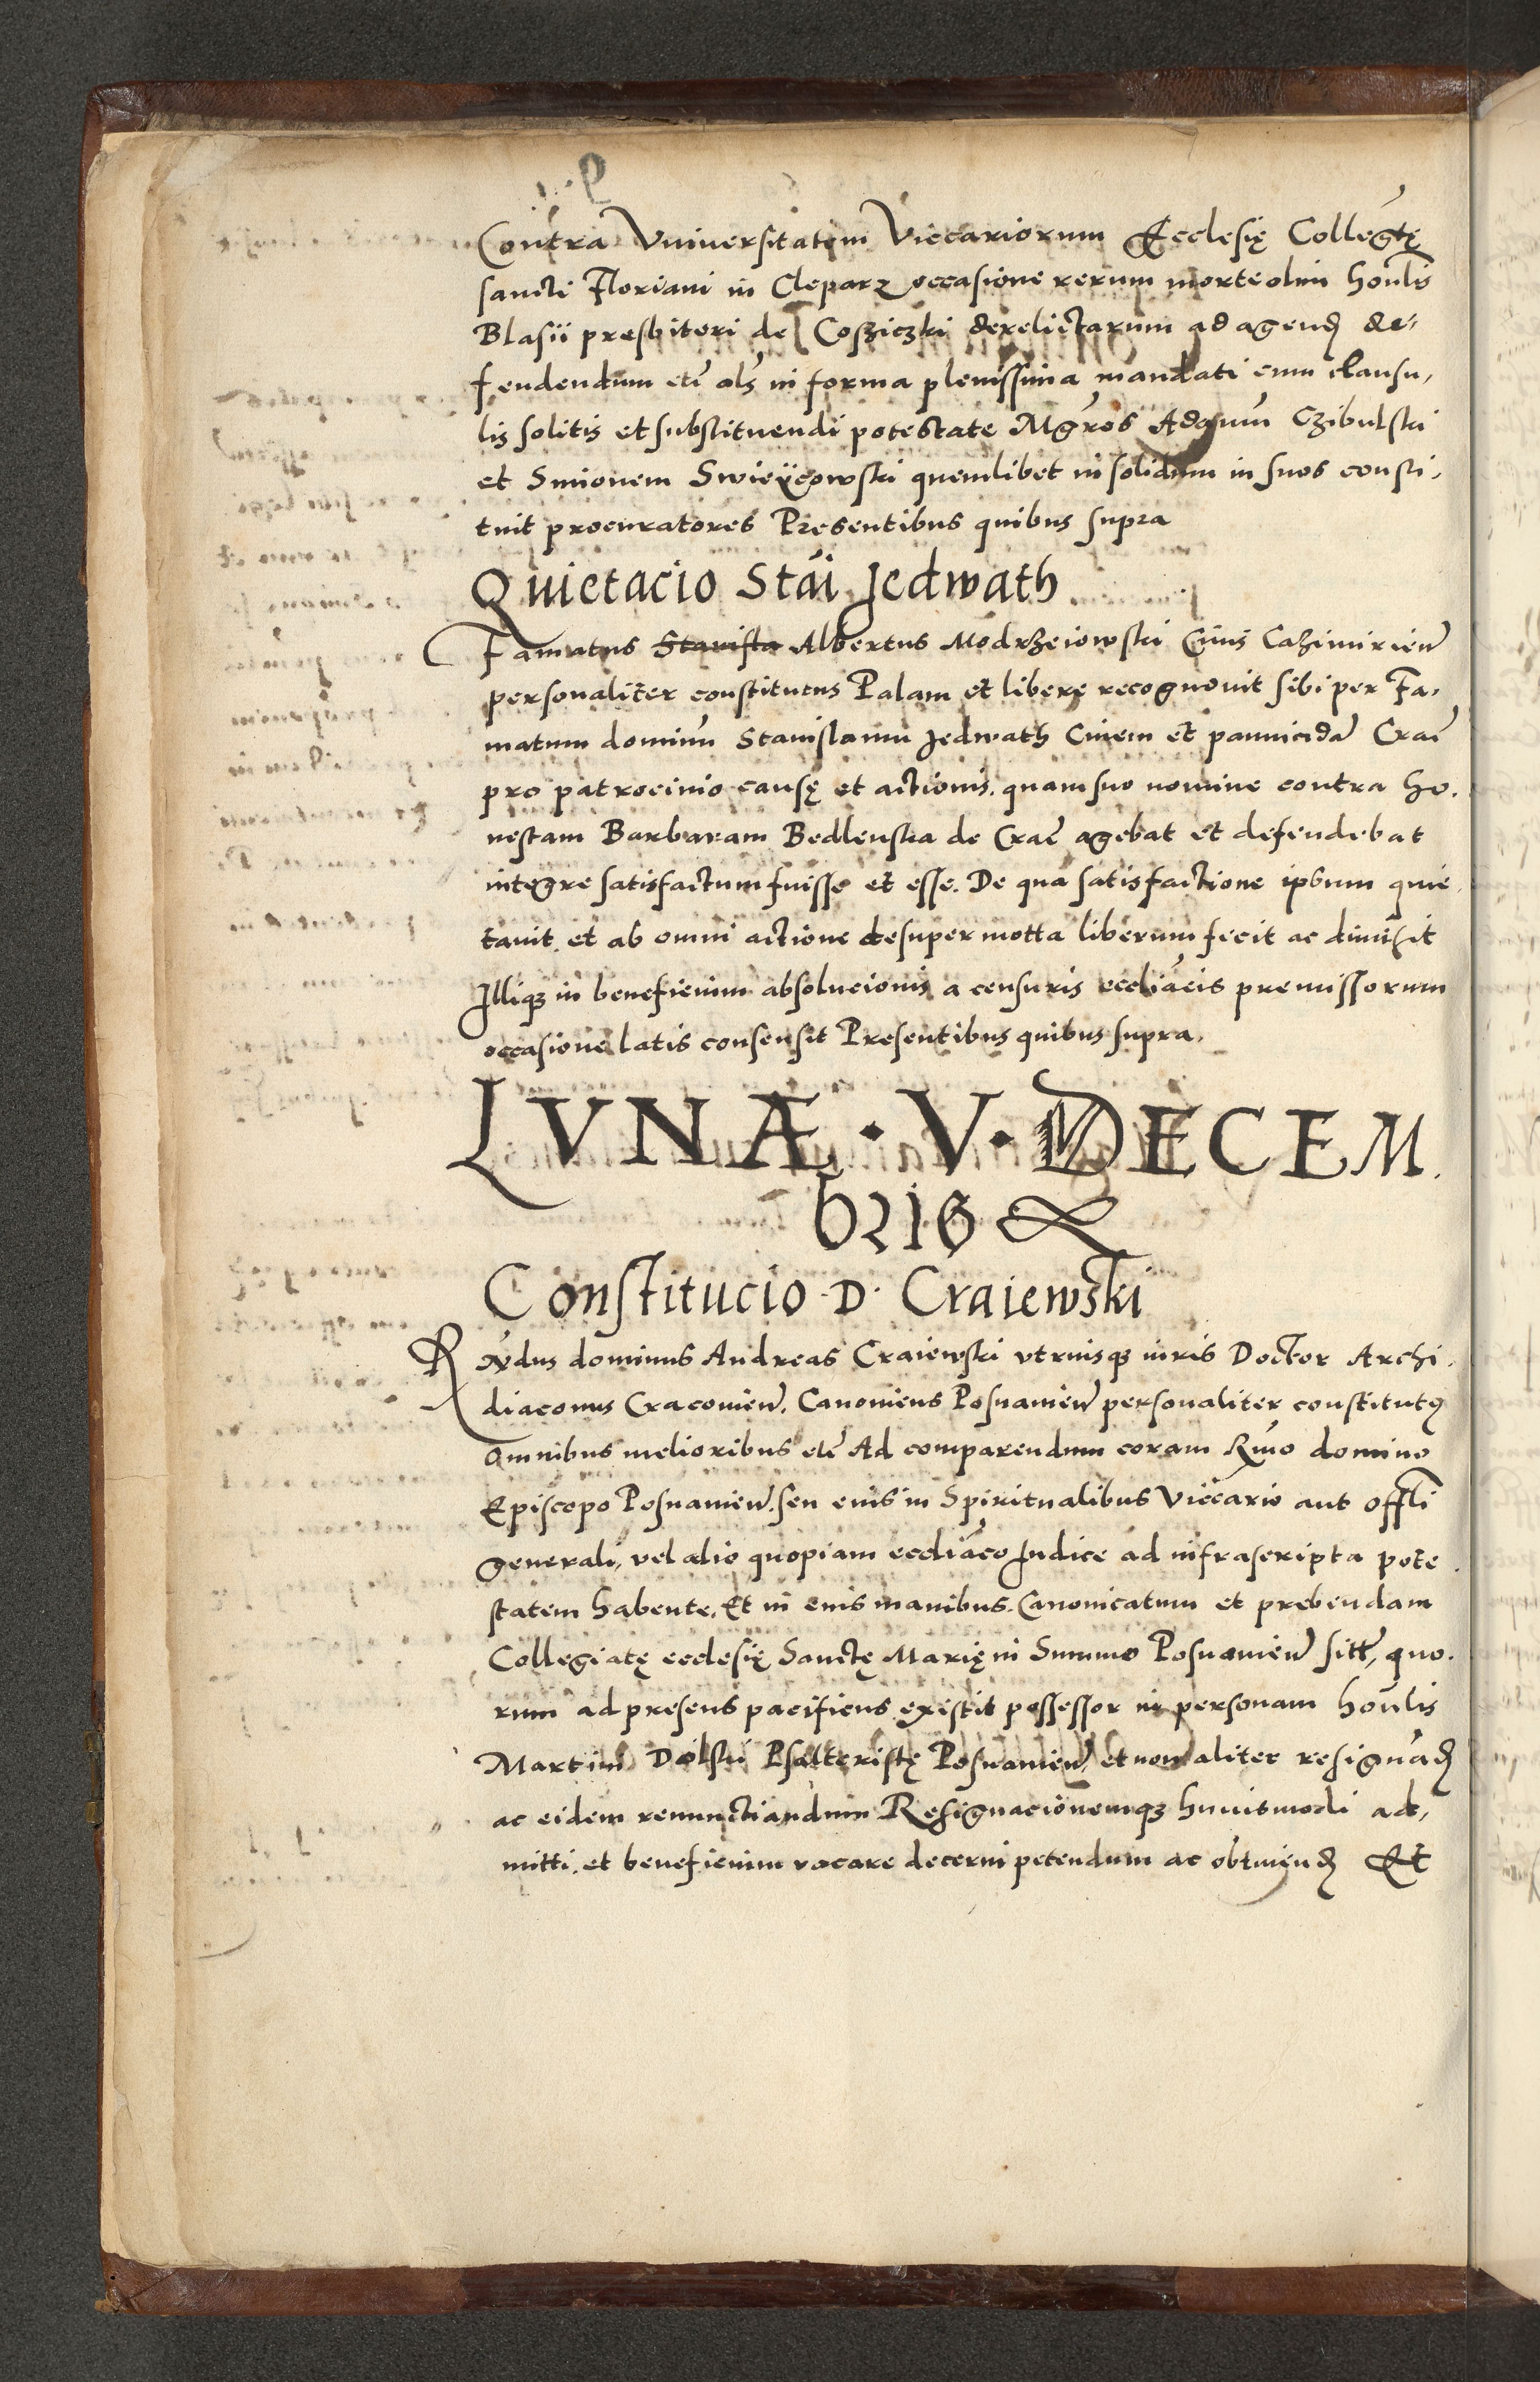 Contra Vniuersitatem Viccariorum Ecclesię Collegtę
sancti Floriani in Cleparz occasione rerum morte olim honlis
Blasii presbiteri de Cosziczki derelictarum ad agend de-
fendendum etc als in forma plenissima mandati cum clausu,
lis solitis et substituendi potestate Mgros Adamum Czibulski
et Simonem Swieÿcowski quemlibet in solidum in suos consti,
tuit procuratores Presentibus quibus supra
Quietacio Stai Jedwath
Famatus Stanisla Albertus Modrzeiowski Ciuis Cazimirien
personaliter constitutus Palam et libere recognouit sibi per Fa,
matum dominum Stanislaum Jedwath Ciuem et pannicidā Crac
pro patrocinio causę et actionis, quam suo nomine contra ho,
nestam Barbaram Bedlenska de Crac agebat et defendebat
integre satisfactum fuisse et esse. De qua satisfactione ipsum quie,
tauit, et ab omni actione desuper motta liberum fecit ac dimisit
Illiqꝫ in beneficium absolucionis a censuris eccliacis premissorum
occasione latis consensit Presentibus quibus supra.
LVNÆ · V · DECEM.
bris
Constitucio D. Craiewski
Rndus dominus Andreas Craiewski vtriusqꝫ iuris Doctor Archi,
diaconus Cracouien, Canonicus Posnanien personaliter constitutꝰ
Omnibus melioribus etc Ad comparendum coram Rmo domino
Episcopo Posnanien, seu eius in Spiritualibus Viccario aut offli
generali, vel alio quopiam eccliaco Judice ad infrascripta pote,
statem habente, Et in eius manibus Canonicatum et prebendam
Collegiatę ecclesię Sanctę Marię in Summo Posnanien sitt, quo,
rum ad presens pacificus existit possessor in personam honlis
Martini Dolski Psalteristę Posnanien, et non aliter resignād
ac eidem renunctiandum Resignacionemqꝫ huiusmodi ad,
mitti, et beneficium vacare decerni petendum ac obtinend Et